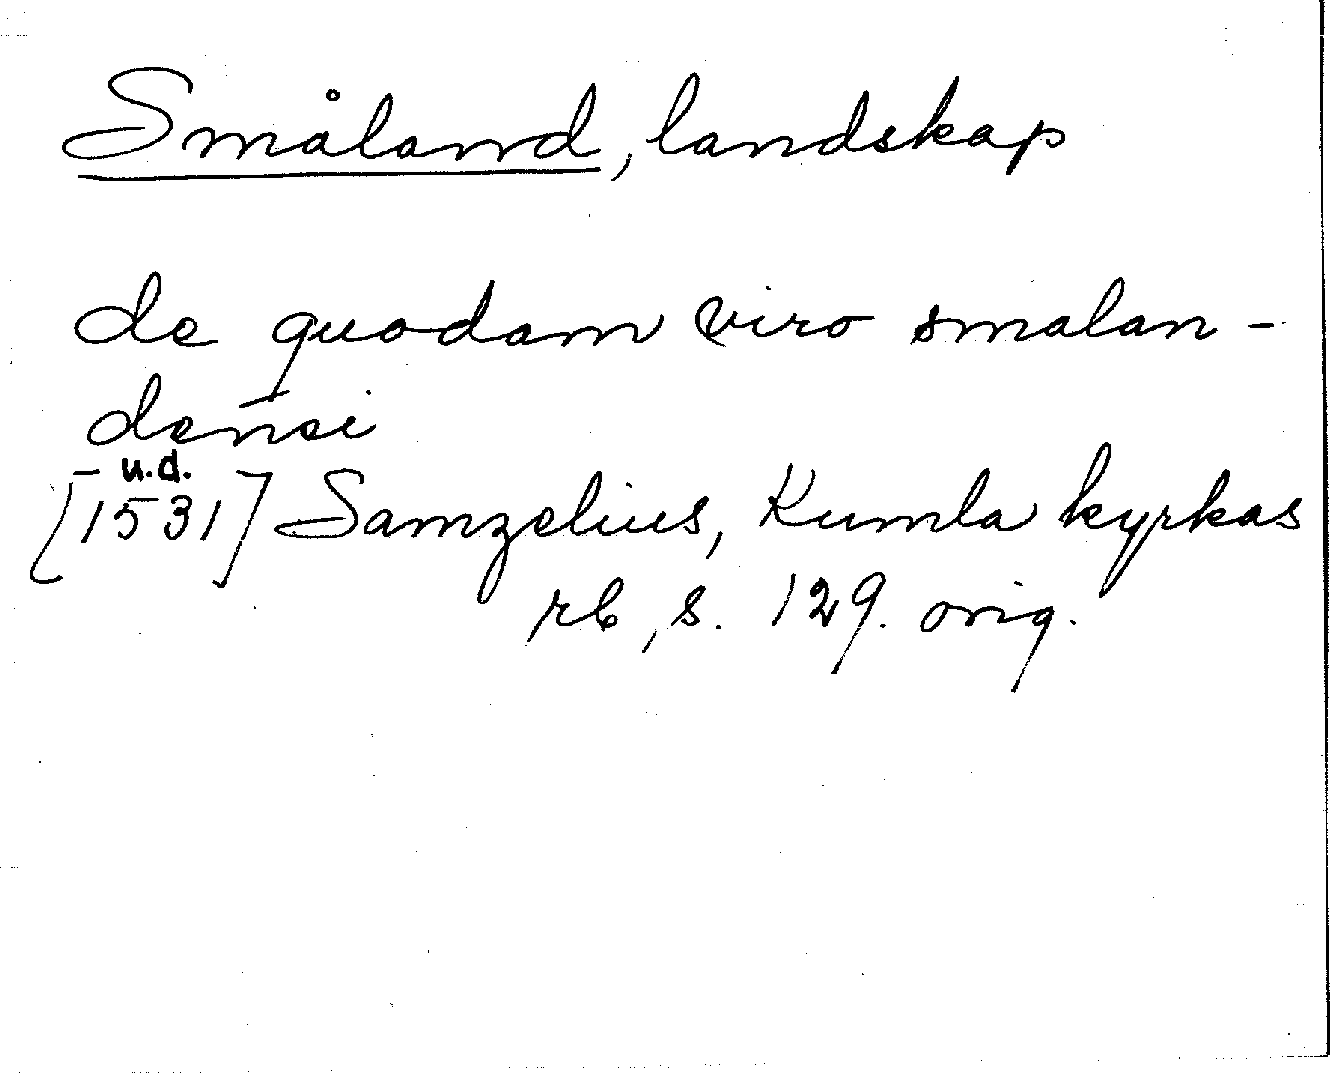 Småland, landskap
de quodam viro smalan-
densi
u.d.
[1531] Samzelius, Kumla kyrkas
rb, s. 129. orig.